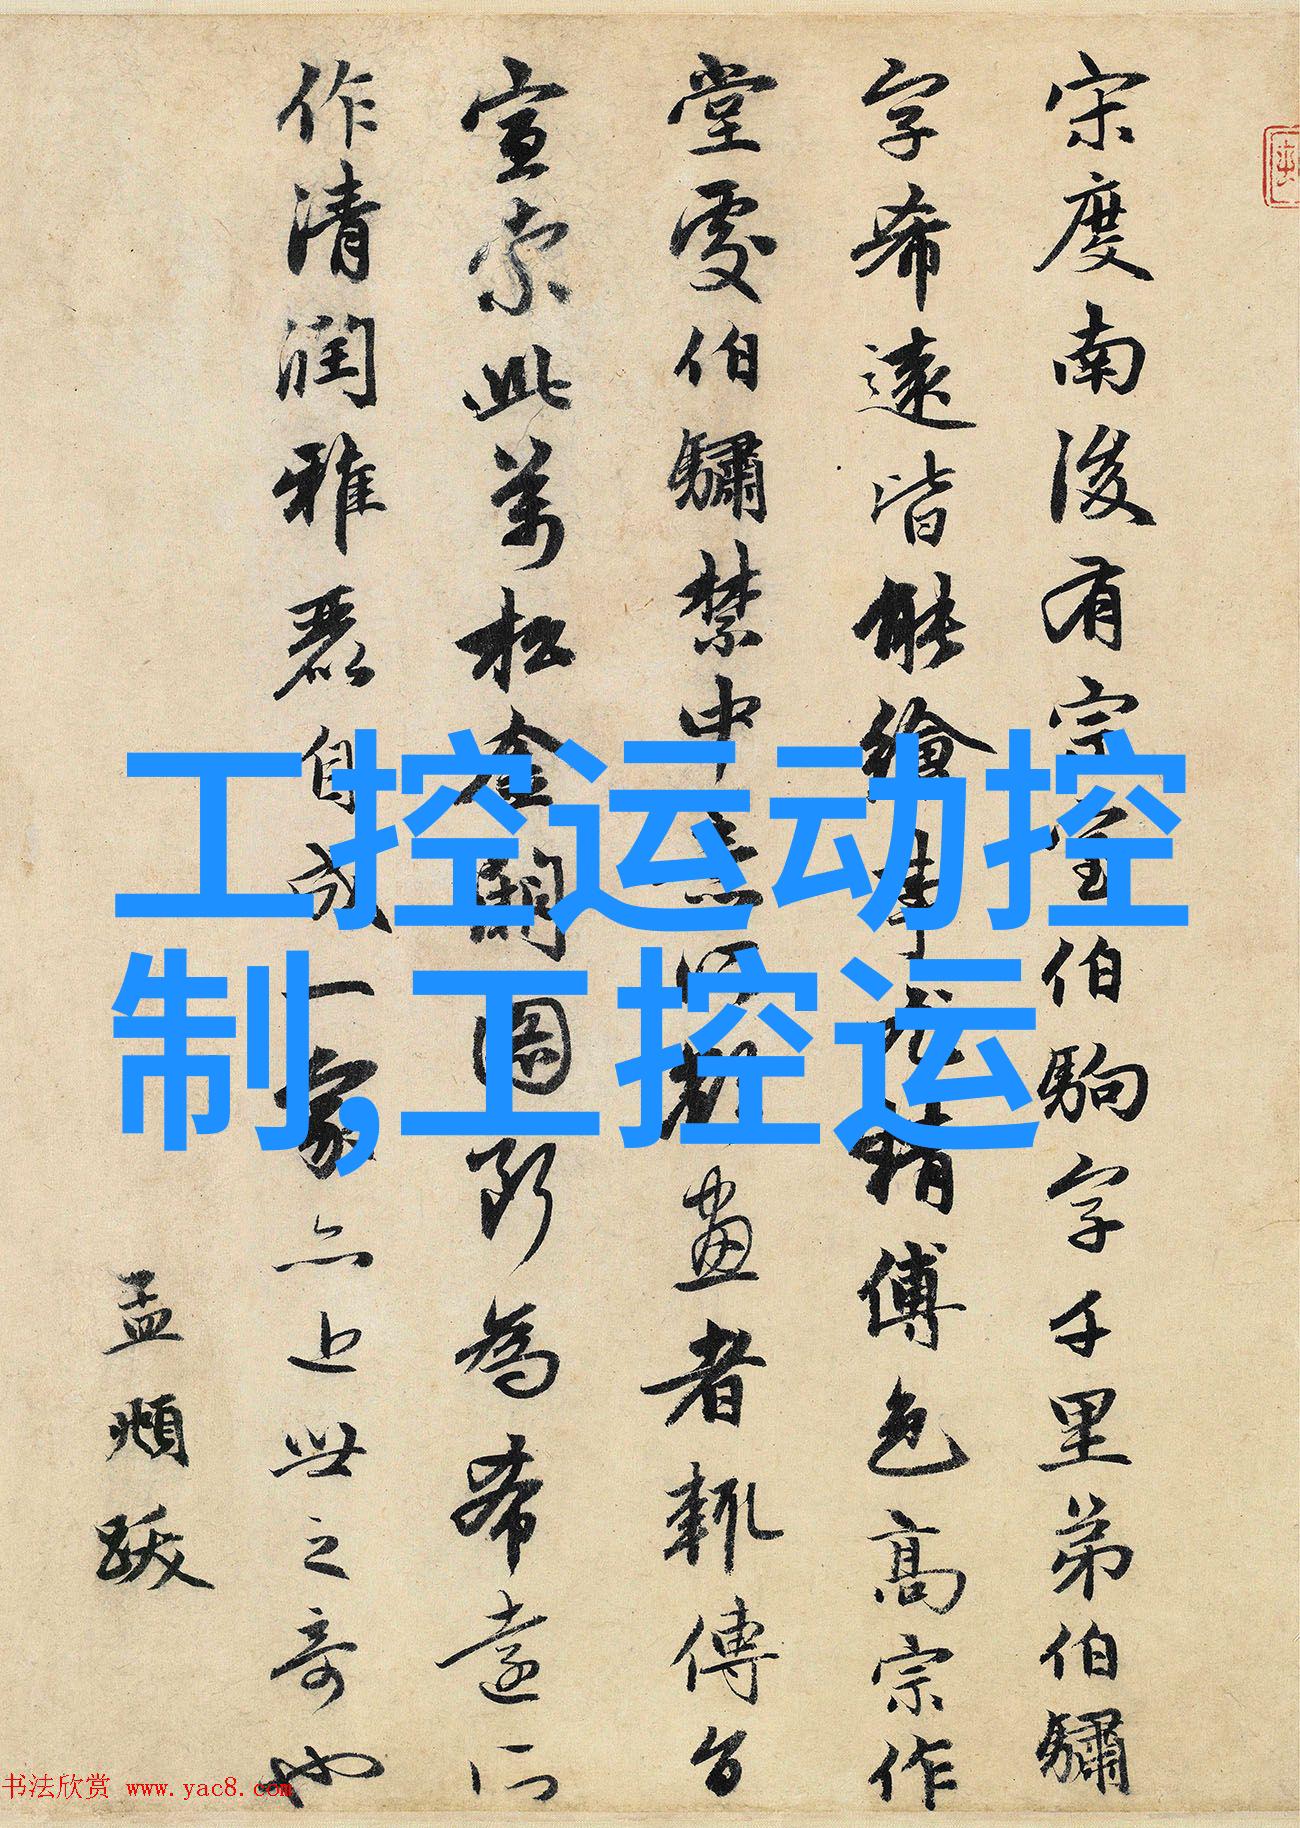 宋度南後有宗室伯駒字千里弟伯驌
字希遠皆能繪事尤精傅色高宗作
堂處伯驌禁中意所畫者輒傳旨
宣索此萬松金闕圖所為希遠所
作清潤雅麗自成一家亦近世之奇也
孟頫跋
工控运动控
制,工控运
书法欣赏 www.yac8.com